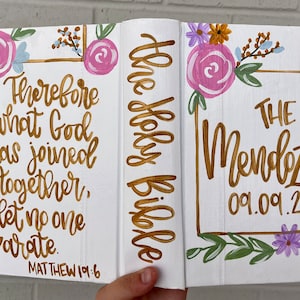 Therefore
what God
has joined
together,
let no one
separate.
MATTHEW 19:6
the Holy Bible
THE
09.09.2